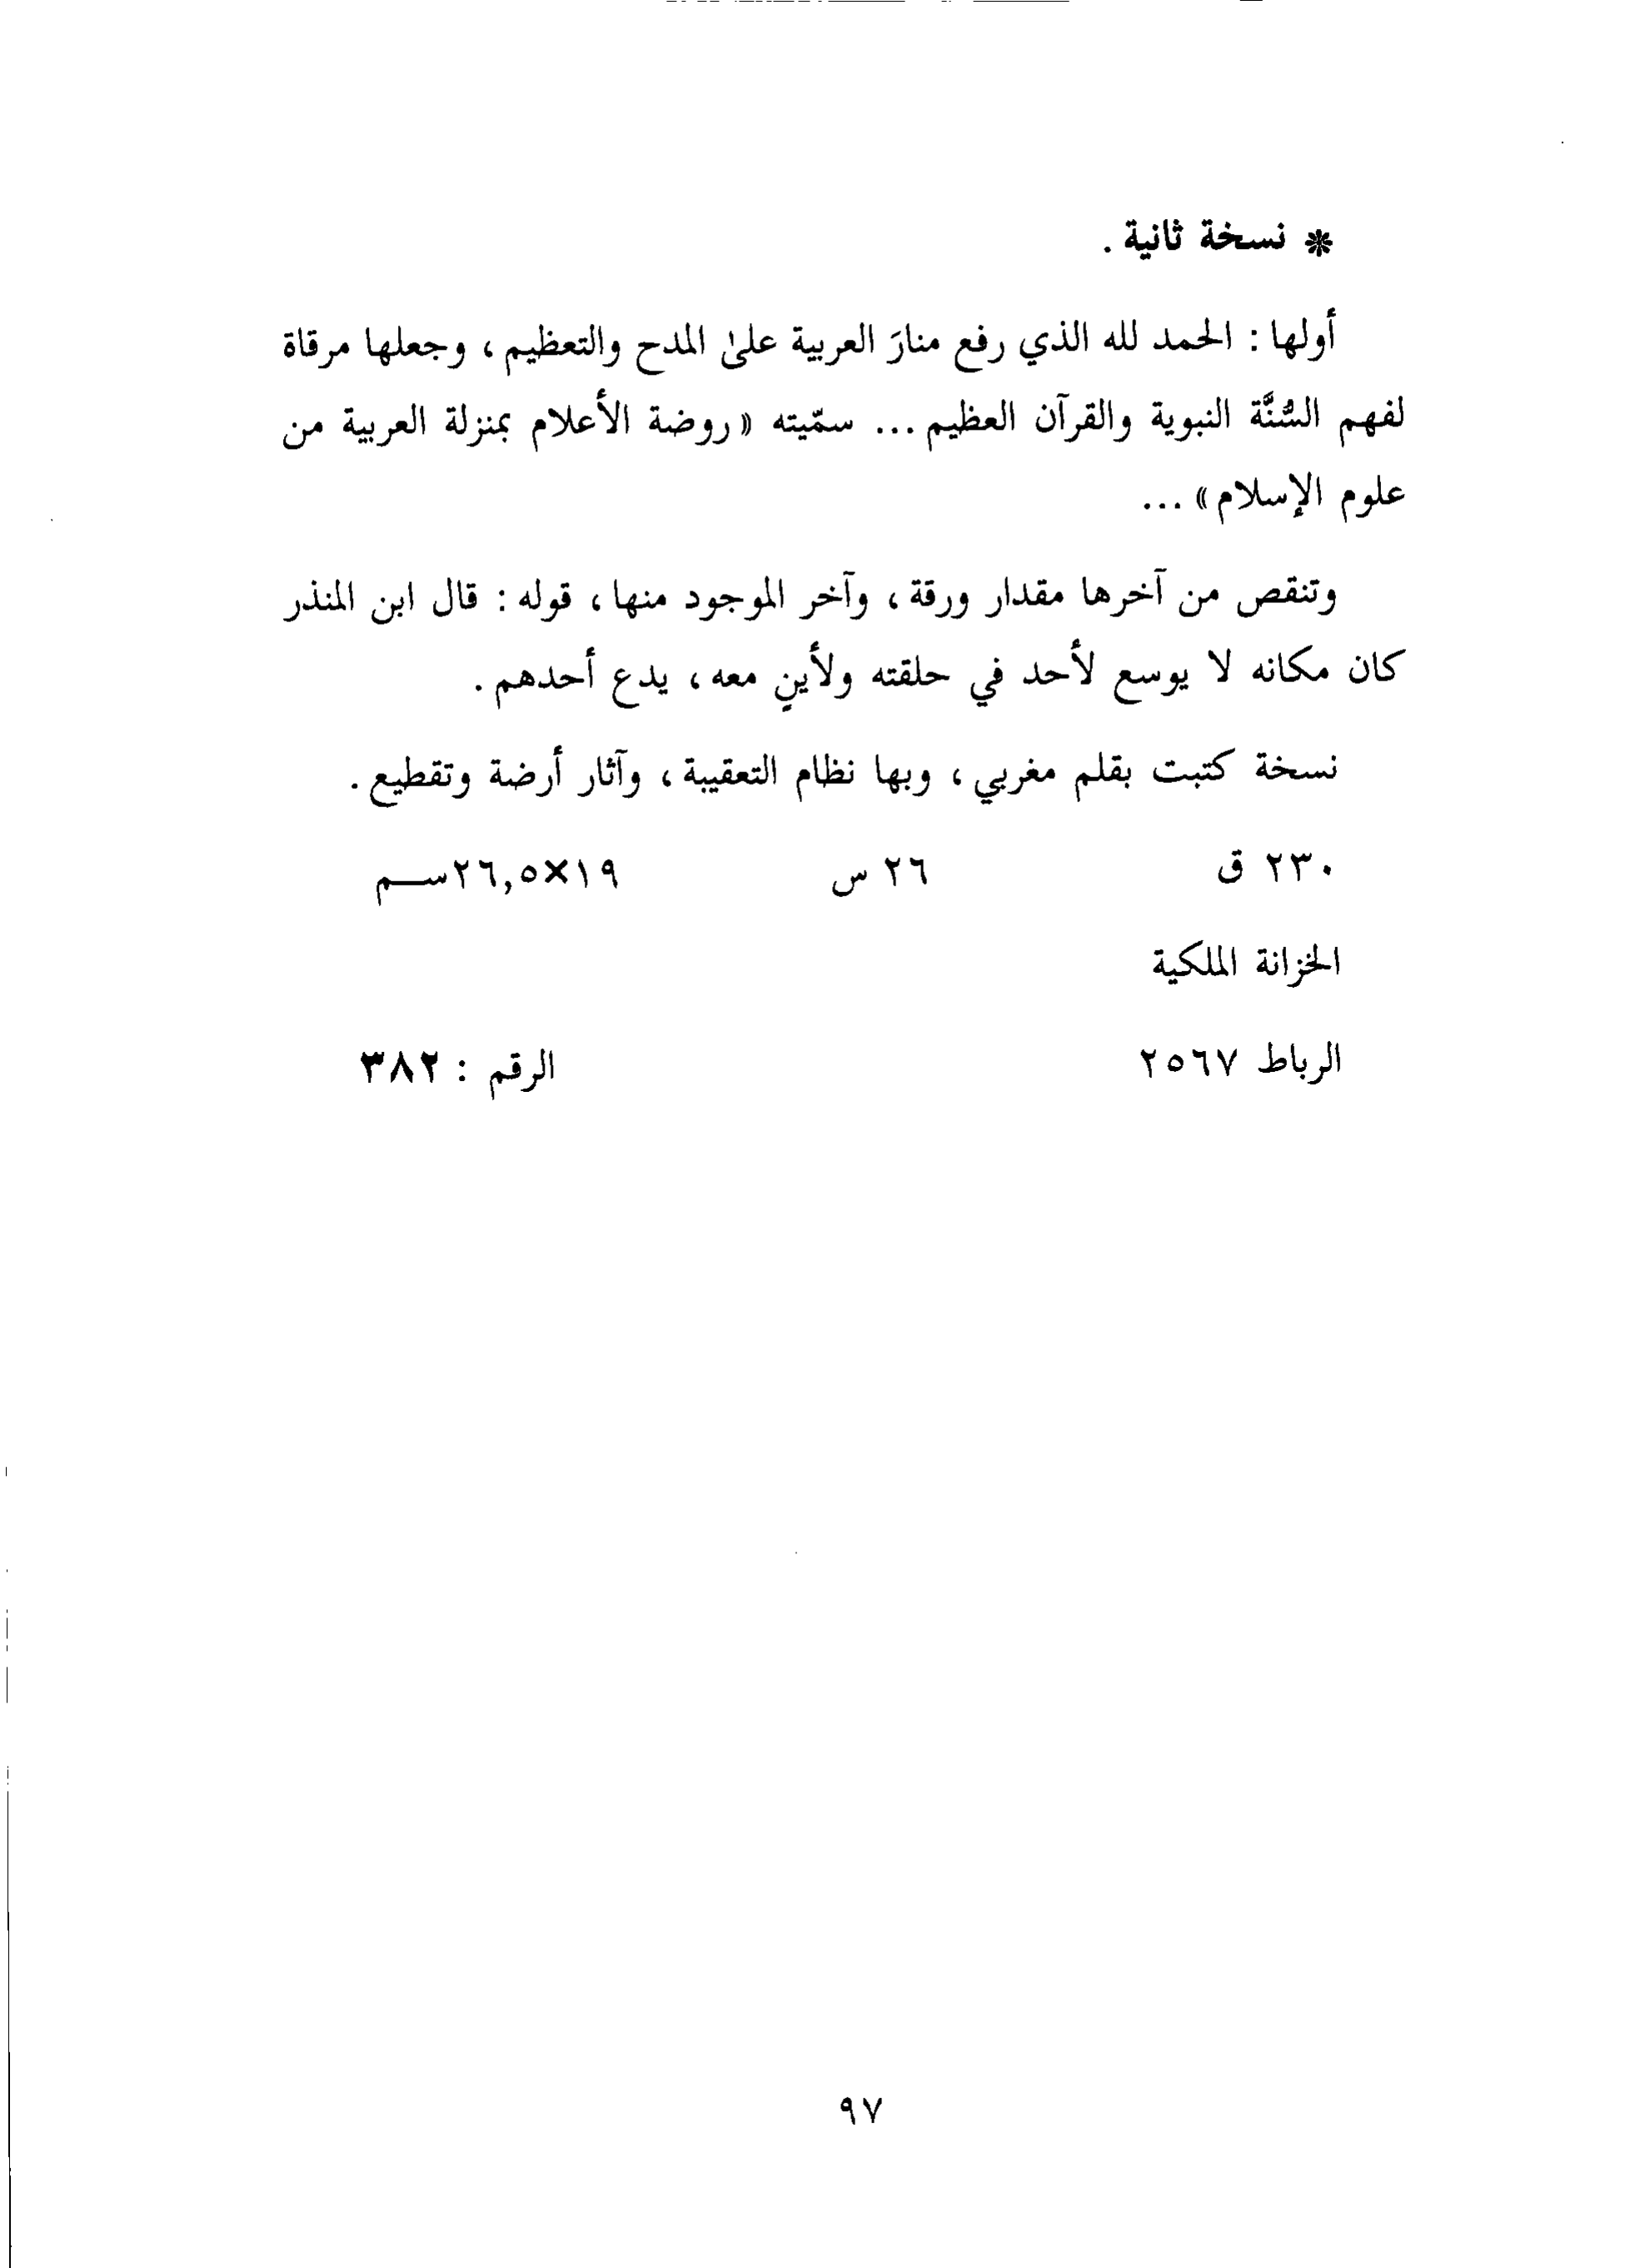 * نسخة ثانية .
أولها : الحمد لله الذي رفع منارَ العربية علىٰ المدح والتعظيم ، وجعلها مرقاة
لفهم السُّنَّة النبوية والقرآن العظيم ... سمّيته « روضة الأعلام بمنزلة العربية من
علوم الإسلام » ...
وتنقص من آخرها مقدار ورقة ، وآخر الموجود منها ، قوله : قال ابن المنذر
كان مكانه لا يوسع لأحد في حلقته ولأينٍ معه ، يدع أحدهم .
نسخة كتبت بقلم مغربي ، وبها نظام التعقيبة ، وآثار أرضة وتقطيع .
٢٣٠ ق ٢٦ س ١٩×٢٦,٥ســم
الخزانة الملكية
الرباط ٢٥٦٧ الرقم : ٣٨٢
٩٧